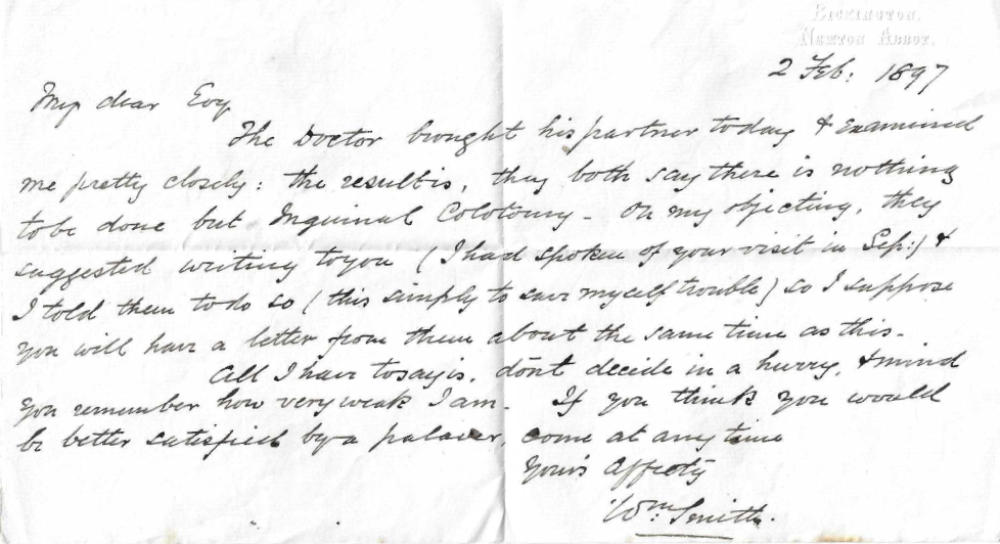 Bickington.
Newton Abbot.
2 Feb: 1897
My dear Evy
The Doctor brought his partner today & examined
me pretty closely: the result is, they both say there is nothing
to be done but Inguinal Colotomy - On my objecting, they
suggested writing to you (I had spoken of your visit in Sep:) &
I told them to do so (this simply to save myself trouble) so I suppose
you will have a letter from them about the same time as this -
All I have to say is, dont decide in a hurry, & mind
you remember how very weak I am - If you think you would
be better satisfied by a palaver, come at any time
Yours Affecty
Wm: Smith.